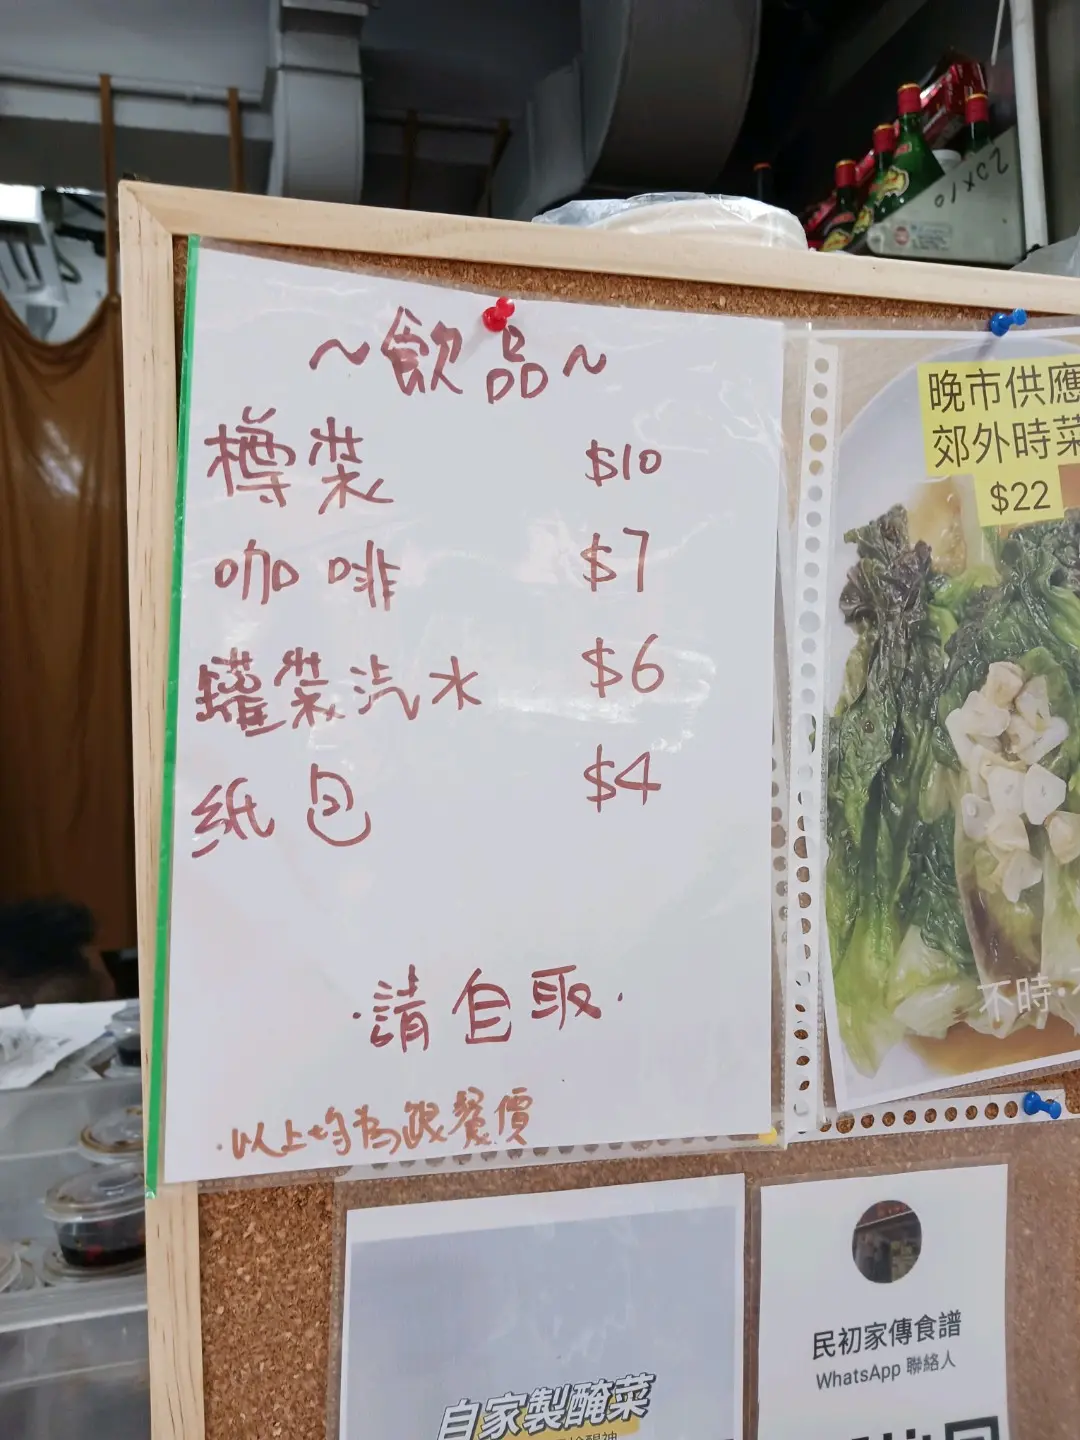 ～飲品～
樽裝 $10
咖啡 $7
罐裝汽水 $6
紙包 $4
·請自取·
·以上均為跟餐價
晚市供應
郊外時菜
$22
不時·
民初家傳食譜
WhatsApp 聯絡人
自家製醃菜